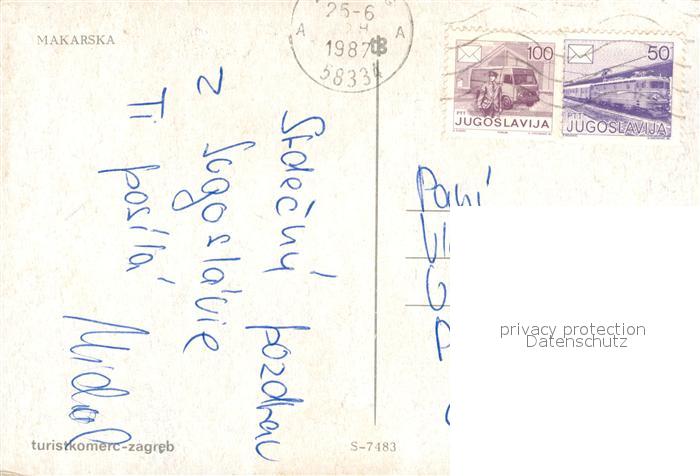 MAKARSKA
25-6
1987
58334
A
A
100
PTT
JUGOSLAVIJA
50
PTT
JUGOSLAVIJA
Srdečný pozdrav
z Jugoslávie
Ti posílá
Michal
Paní
privacy protection
Datenschutz
turistkomerc-zagreb
S-7483